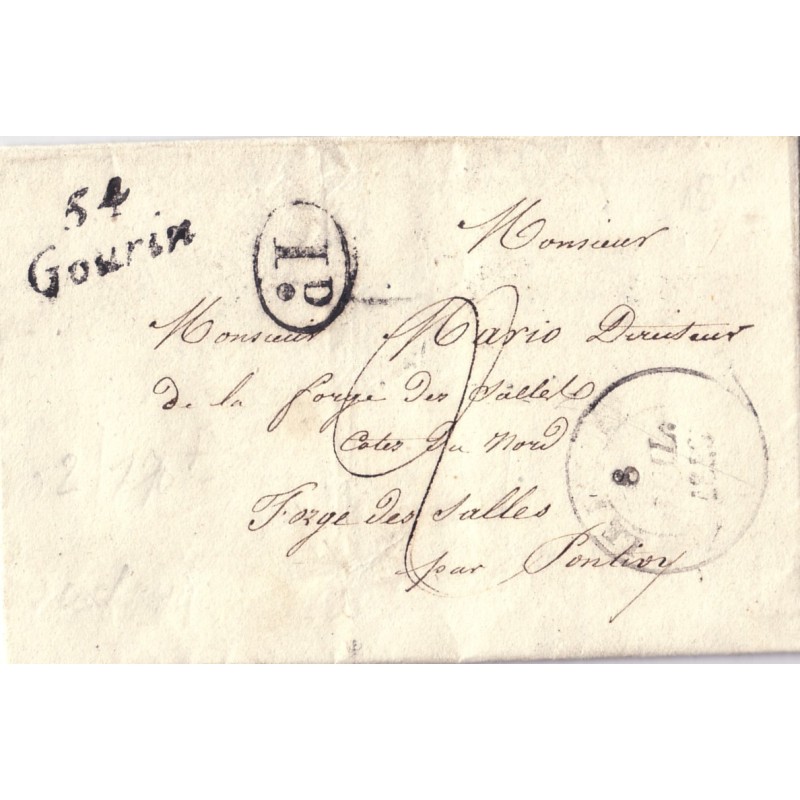 54
Gourin
ID.
Monsieur
Monsieur Mario Directeur
de la forge des Salles
Cotes du Nord
Forge des Salles
par Pontivy
8